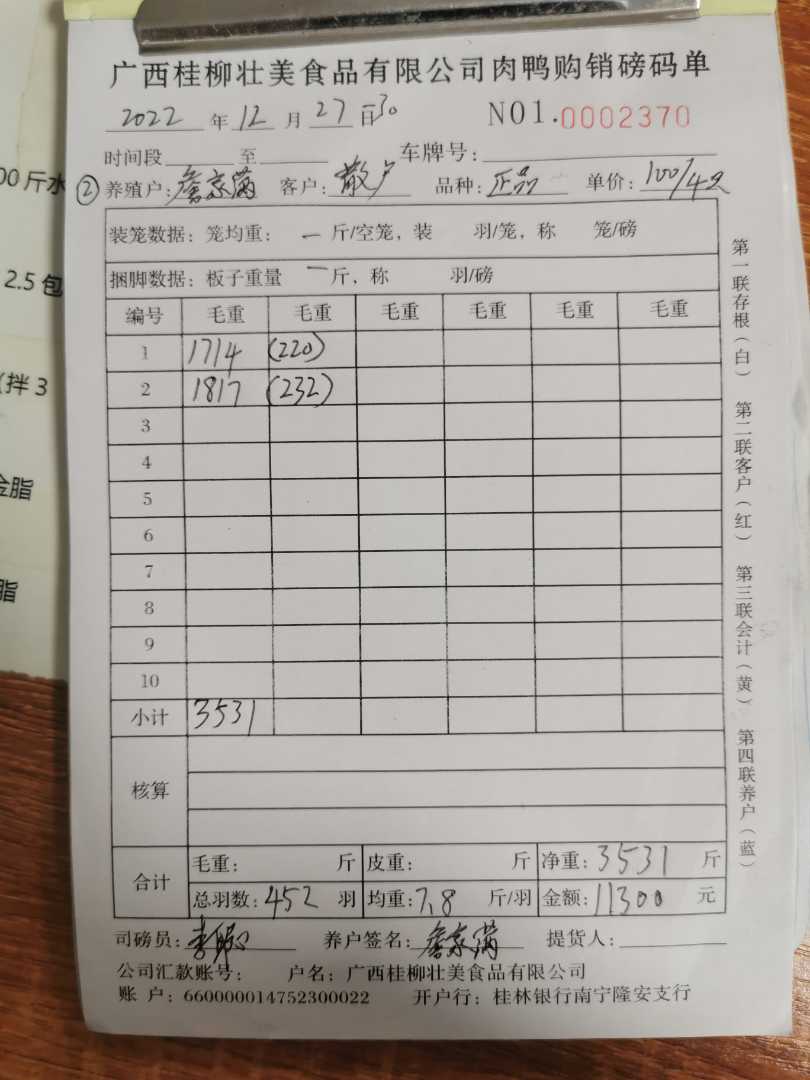 广西桂柳壮美食品有限公司肉鸭购销磅码单
2022 年 12 月 27 日 30
NO1.0002370
时间段 至 车牌号:
② 养殖户: 詹家满 客户: 散户 品种: 正品 单价: 100/4只
装笼数据: 笼均重: 一 斤/空笼, 装 羽/笼, 称 笼/磅
捆脚数据: 板子重量 一 斤, 称 羽/磅
编号 毛重 毛重 毛重 毛重 毛重 毛重
1 1714 (220)
2 1817 (232)
3
4
5
6
7
8
9
10
小计 3531
核算
合计 毛重: 斤 皮重: 斤 净重: 3531 斤
总羽数: 452 羽 均重: 7.8 斤/羽 金额: 11300 元
司磅员: 养户签名: 詹家满 提货人:
公司汇款账号: 户名: 广西桂柳壮美食品有限公司
账 户: 660000014752300022 开户行: 桂林银行南宁隆安支行
第一联存根(白) 第二联客户(红) 第三联会计(黄) 第四联养户(蓝)
00斤水
2.5包
(拌3
金脂
脂